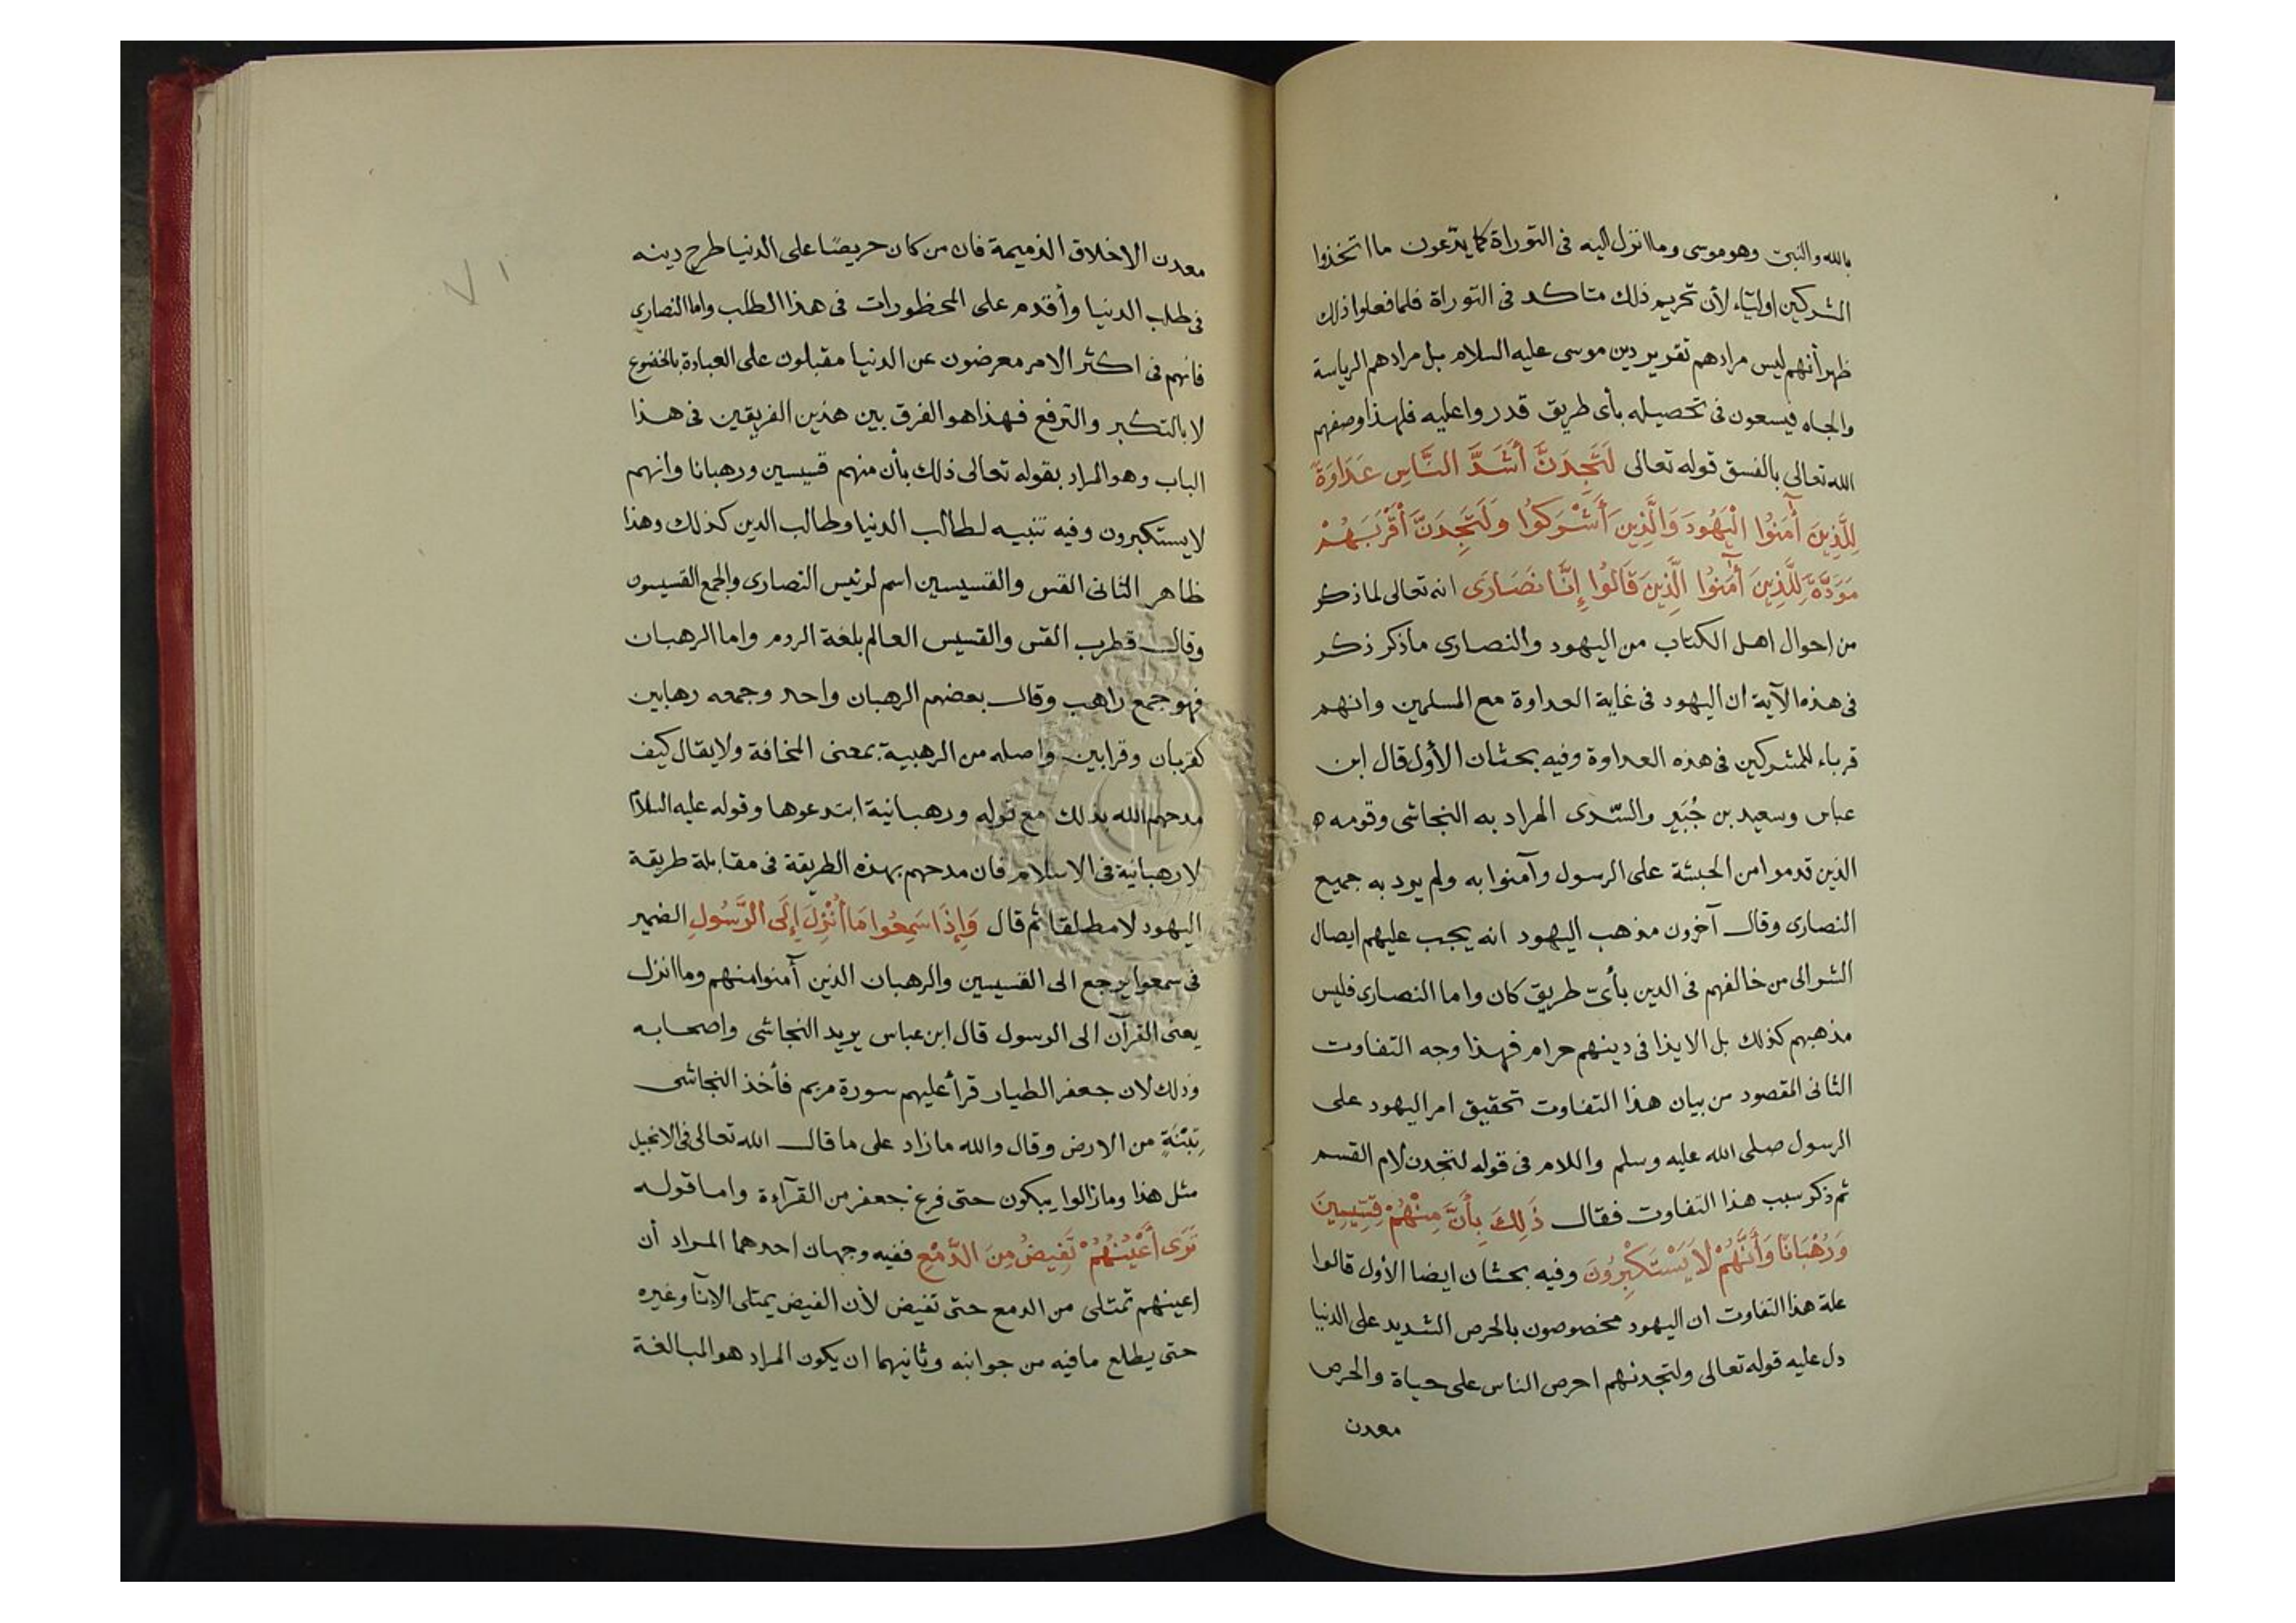 بالله والنبى وهو موسى وما انزل اليه فى التوراة كما يدّعون ما اتخذوا
المشركين اوليّاء لأن تحريم ذلك متاكد فى التوراة فلما فعلوا ذلك
ظهر أنهم ليس مرادهم تقرير دين موسى عليه السلام بل مرادهم الرياسة
والجاه فيسعون فى تحصيله بأى طريق قدروا عليه فلهذا وصفهم
الله تعالى بالفسق قوله تعالى لَتَجِدَنَّ أَشَدَّ النَّاسِ عَدَاوَةً
لِلَّذِينَ أٓمَنُوا الْيَهُودَ وَالَّذِينَ أَشْرَكُوا وَلَتَجِدَنَّ أَقْرَبَهُمْ
مَوَدَّةً لِلَّذِينَ أٓمَنُوا الَّذِينَ قَالُوا إِنَّا نَصَارَى انه تعالى لما ذكر
من احوال اهل الكتاب من اليهود والنصارى ما ذكر ذكر
فى هذه الآية ان اليهود فى غاية العداوة مع المسلمين وانهم
قرباء للمشركين فى هذه العداوة وفيه بحثان الأول قال ابن
عباس وسعيد بن جُبَير والسّدى المراد به النجاشى وقومه
الذين قدموا من الحبشة على الرسول وآمنوا به ولم يرد به جميع
النصارى وقال آخرون مذهب اليهود انه يجب عليهم ايصال
الشر الى من خالفهم فى الدين بأىّ طريق كان واما النصارى فليس
مذهبهم كذلك بل الايذا فى دينهم حرام فهذا وجه التفاوت
الثانى المقصود من بيان هذا التفاوت تحقيق امر اليهود على
الرسول صلى الله عليه وسلم واللام فى قوله لتجدن لام القسم
ثم ذكر سبب هذا التفاوت فقال ذَلِكَ بِأَنَّ مِنْهُمْ قِسِّيسِينَ
وَرُهْبَانًا وَأَنَّهُمْ لَا يَسْتَكْبِرُونَ وفيه بحثان ايضا الأول قالوا
علة هذا التفاوت ان اليهود مخصوصون بالحرص الشديد على الدنيا
دل عليه قوله تعالى ولتجدنهم احرص الناس على حياة والحرص
معدن
٧١
معدن الاخلاق الذميمة فان من كان حريصًا على الدنيا طرح دينه
فى طلب الدنيا وأقدم على المحظورات فى هذا الطلب واما النصارى
فانهم فى اكثر الامر معرضون عن الدنيا مقبلون على العبادة بالخضوع
لا بالتكبر والترفع فهذا هو الفرق بين هذين الفريقين فى هذا
الباب وهو المراد بقوله تعالى ذلك بأن منهم قسيسين ورهبانا وانهم
لا يستكبرون وفيه تنبيه لطالب الدنيا وطالب الدين كذلك وهذا
ظاهر الثانى القس والقسيسين اسم لرئيس النصارى والجمع القسيسون
وقال قطرب القس والقسيس العالم بلغة الروم واما الرهبان
فهو جمع راهب وقال بعضهم الرهبان واحد وجمعه رهابين
كقربان وقرابين واصله من الرهبية بمعنى المخافة ولا يقال كيف
مدحهم الله بذلك مع قوله ورهبانية ابتدعوها وقوله عليه السلام
لا رهبانية فى الاسلام فان مدحهم بهذه الطريقة فى مقابلة طريقة
اليهود لا مطلقا ثم قال وَإِذَا سَمِعُوا مَا أُنْزِلَ إِلَى الرَّسُولِ الضمير
فى سمعوا يرجع الى القسيسين والرهبان الذين آمنوا منهم وما انزل
يعنى القرآن الى الرسول قال ابن عباس يريد النجاشى واصحابه
وذلك لان جعفر الطيار قرأ عليهم سورة مريم فأخذ النجاشى
تِبْنَةٍ من الارض وقال والله ما زاد على ما قال الله تعالى فى الانجيل
مثل هذا وما زالوا يبكون حتى فرغ جعفر من القرآءة واما قوله
تَرَى أَعْيُنَهُمْ تَفِيضُ مِنَ الدَّمْعِ ففيه وجهان احدهما المراد أن
اعينهم تمتلى من الدمع حتى تفيض لأن الفيض يمتلى الانآ وغيره
حتى يطلع ما فيه من جوانبه وثانيهما ان يكون المراد هو المبالغة